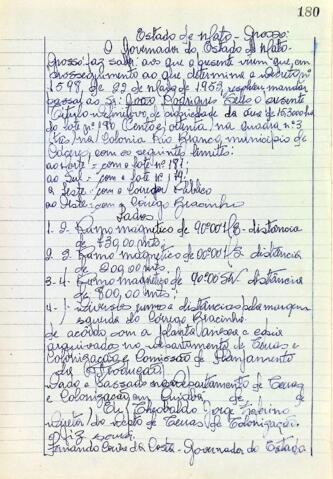 180
Estado de Mato-Grosso:
O Governador do Estado de Mato-
Grosso: faz saber aos que o presente virem que, em
prosseguimento ao que determina o decreto nº
1598, de 22 de março de 1953, resolveu mandar
passar ao Sr. João Rodrigues o presente
Titulo de propriedade da área de 15,3000 ha
do lote nº 180 Cento e oitenta, na quadra nº 3
três na Colonia Rio Branco, municipio de
com os seguinte limites:
ao Norte = com o lote nº 181
ao Sul = com o lote nº 179
a Leste = com o Corredor Publico
ao Oeste = com o Corrego Bracinho
Lados
1. 2. Rumo magnetico de 90º00' E distancia
de 730,00 mts.
2. 3. Rumo magnetico de 00º00' S distância
de 200,00 mts.
3. 4. Rumo magnetico de 90º00' distância
de 800,00 mts.
4. 1 Diversos rumos e distâncias pela margem
esquerda do Corrego Bracinho
de acordo com a planta anexa e copia
arquivados no Departamento de Terras e
Colonização e Comissão de Planejamento
da Produção
Dado e Passado no Departamento de Terras
e Colonização, em Cuiabá, de de
Eu, Theobaldo Jorge
Diretor do de Terras de Colonização
o fiz escrever
Fernando Corrêa da Costa - Governador do Estado